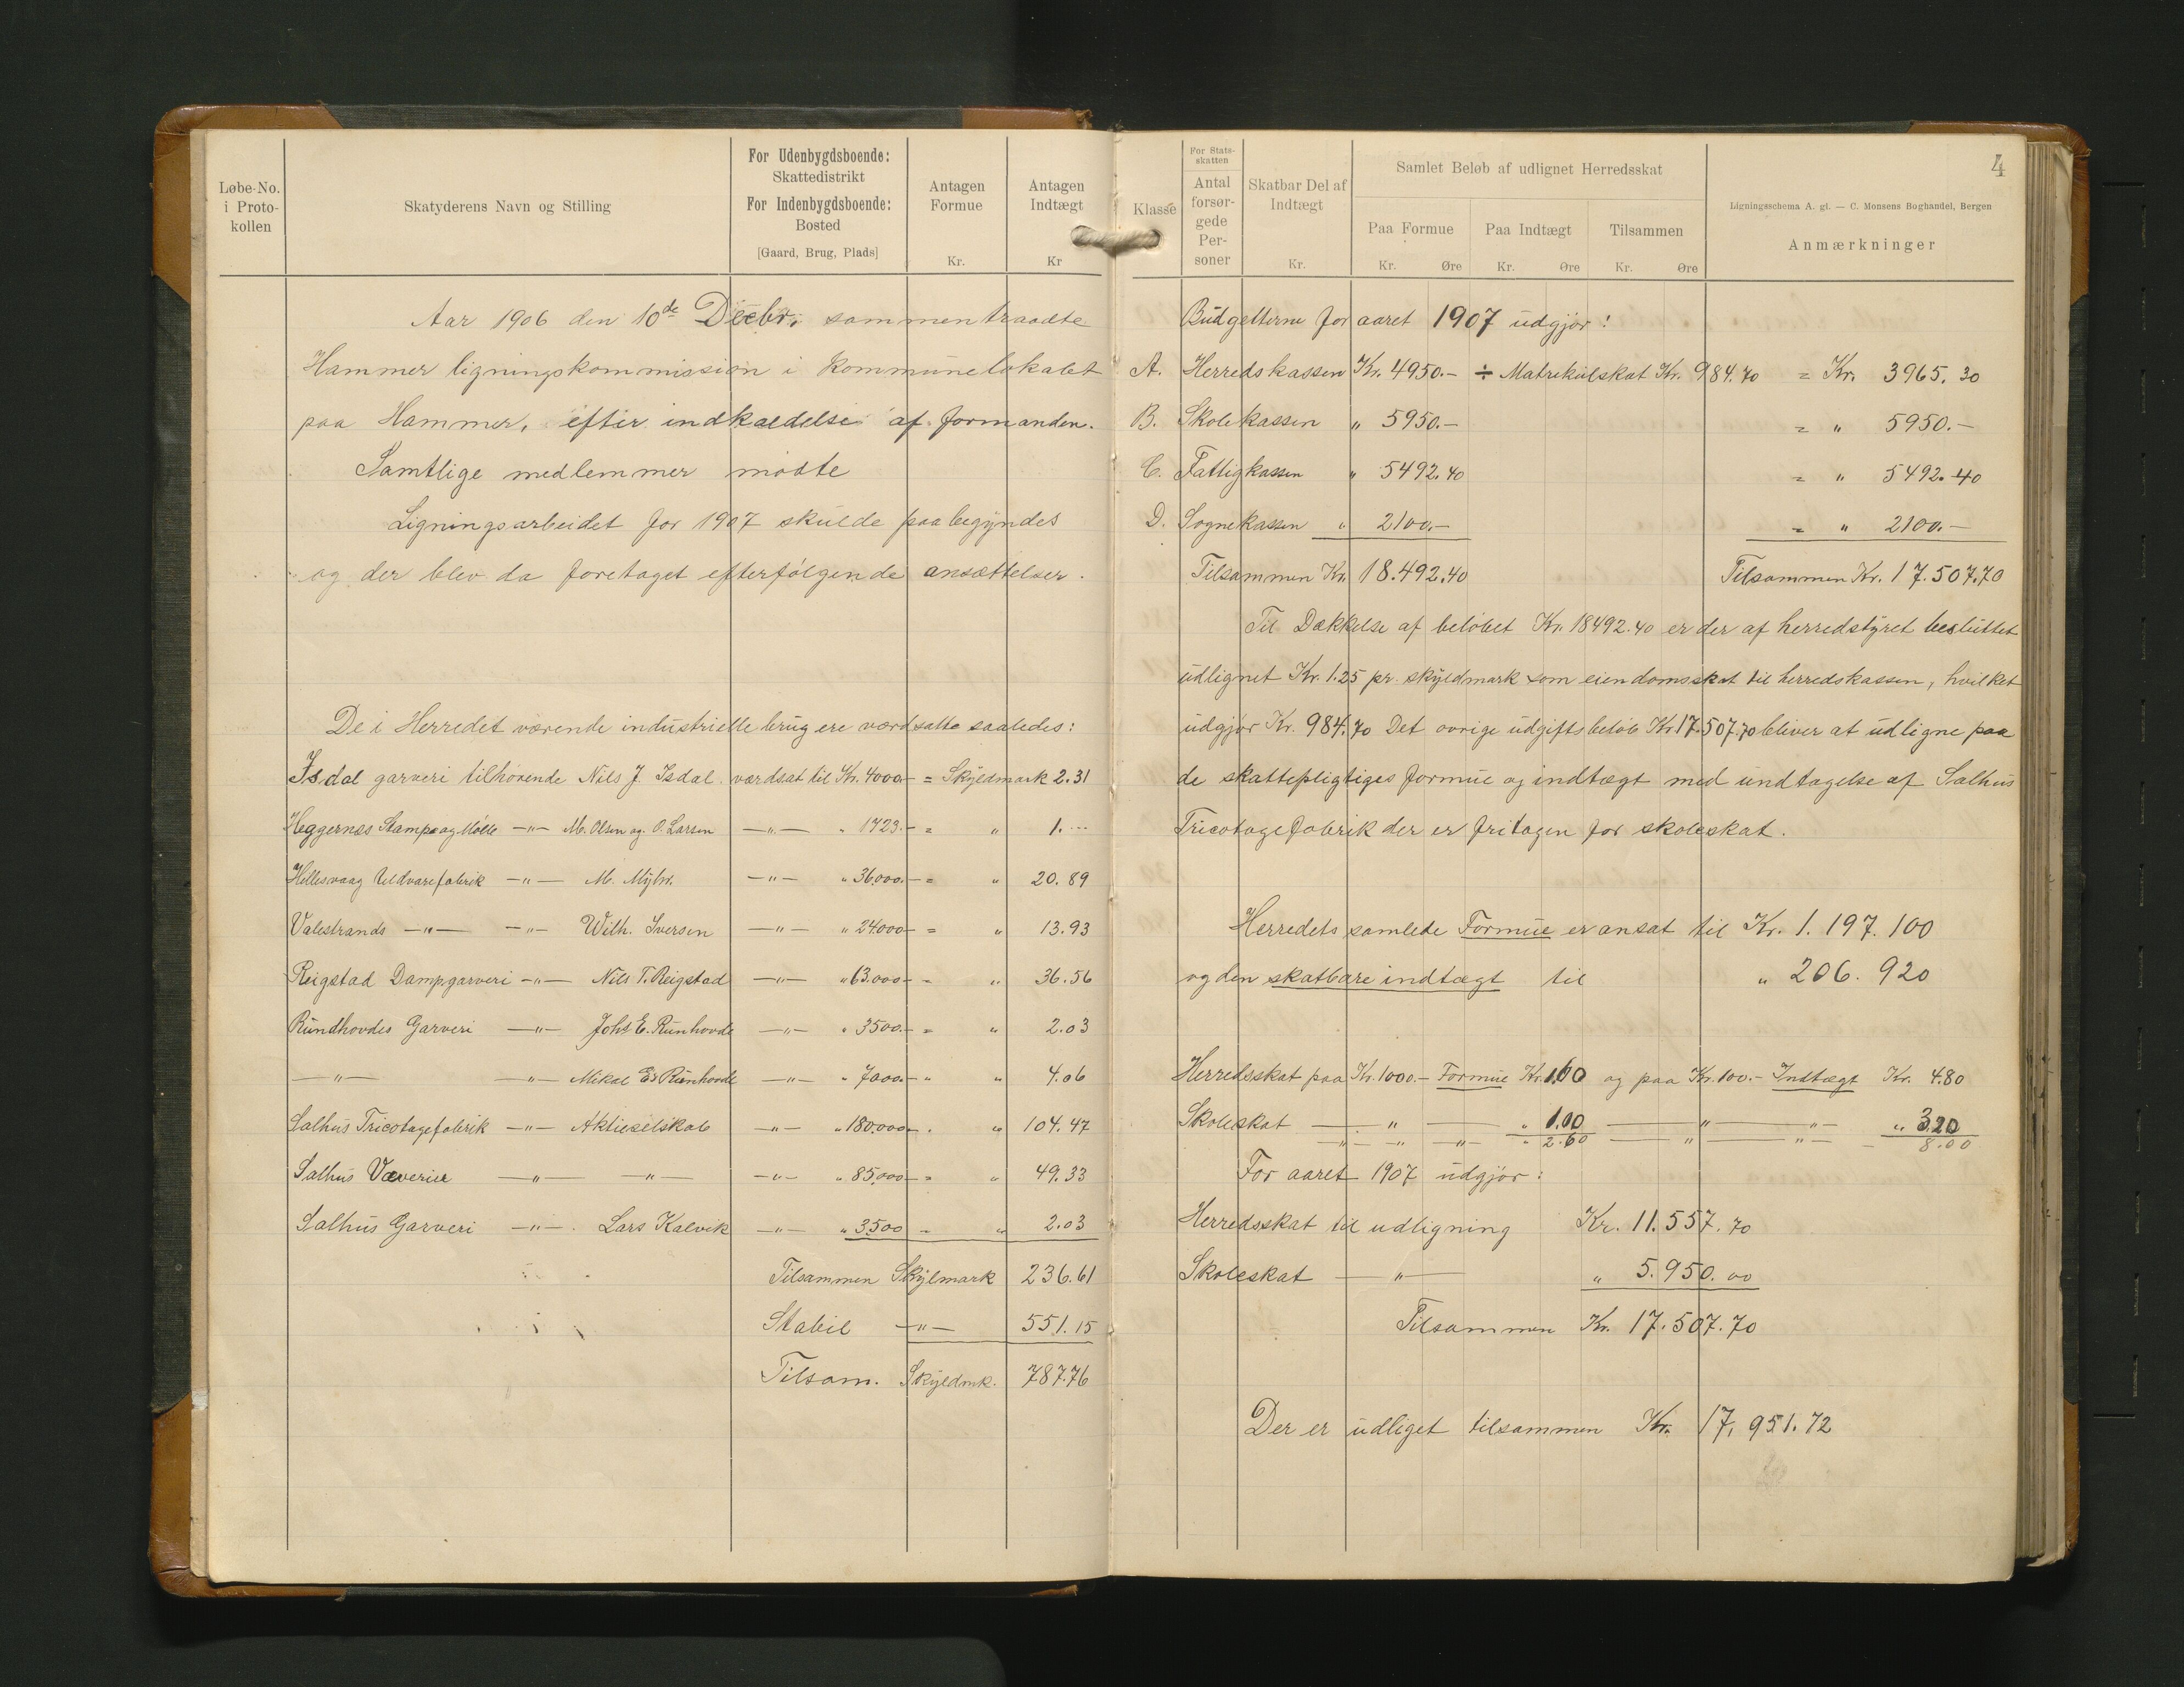 Løbe-No.
i Proto-
kollen
Skatyderens Navn og Stilling
For Udenbygdsboende:
Skattedistrikt
For Indenbygdsboende:
Bosted
[Gaard, Brug, Plads]
Antagen
Formue
Kr.
Antagen
Indtægt
Kr
Aar 1906 den 10de Decbr. sammentraadte
Hammer ligningskommission i kommunelokalet
paa Hammer, efter indkaldelse af formanden.
Samtlige medlemmer mødte
Ligningsarbeidet for 1907 skulde paabegyndes
og der blev da foretaget efterfølgende ansættelser.
De i Herredet værende industrielle brug ere værdsatte saaledes:
Isdal garveri tilhørende Nils J. Isdal værdsat til Kr. 4000.- = Skyldmark 2.31
Heggernæs Stampe og Mølle -"- M. Olsen og O. Larsen -"- " 1723.- = " 1.--
Hellesvaag Uldvarefabrik -"- M. Myhr. -"- " 36,000.- = " 20.89
Valestrands -"- -"- Wilh. Iversen -"- " 24000.- = " 13.93
Reigstad Dampgarveri -"- Nils T. Reigstad -"- " 63.000.- = " 36.56
Rundhovdes Garveri -"- Johs E. Runhovde -"- " 3500.- = " 2.03
-"- -"- Mikal Es Runhovde -"- " 7000.- " " 4.06
Salhus Tricotagefabrik -"- Aktieselskab -"- " 180.000.- " 104.47
Salhus Væverier -"- -"- -"- " 85,000.- = " 49.33
Salhus Garveri -"- Lars Kalvik -"- " 3500 = " 2.03
Tilsammen Skylmark 236.61
Stabil -"- 551.15
Tilsam. Skyldmk. 787.76
4
Klasse
For Stats-
skatten
Antal
forsør-
gede
Per-
soner
Skatbar Del af
Indtægt
Kr.
Samlet Beløb af udlignet Herredsskat
Paa Formue
Kr. Øre
Paa Indtægt
Kr. Øre
Tilsammen
Kr. Øre
Ligningsschema A. gl. — C. Monsens Boghandel, Bergen
Anmærkninger
Budgetterne for aaret 1907 udgjør:
A. Herredskassen Kr. 4950.- ÷ Matrikulskat Kr. 984.70 = Kr. 3965.30
B. Skolekassen " 5950.- = " 5950.-
C. Fattigkassen " 5492.40 = " 5492.40
D. Sognekassen " 2100.- = " 2100.-
Tilsammen Kr. 18.492.40 Tilsammen Kr. 17.507.70
Til Dækkelse af beløbet Kr. 18492.40 er der af herredstyret besluttet
udlignet Kr. 1.25 pr. skyldmark som eiendomsskat til herredskassen, hvilket
udgjør Kr. 984.70 Det øvrige udgiftsbeløb Kr 17.507.70 bliver at udligne paa
de skattepligtiges formue og indtægt med undtagelse af Salhus
Tricotagefabrik der er fritagen for skoleskat.
Herredets samlede Formue er ansat til Kr. 1.197.100
og den skatbare indtægt til " 206.920
Herredsskat paa Kr. 1000.- Formue Kr. 1.60 og paa Kr. 100.- Indtægt Kr. 4.80
Skoleskat - " - " 1.00 - " - " - " 3.20
- " - " - " - " 2.60 - " - " - 8.00
For aaret 1907 udgjør:
Herredsskat til udligning Kr. 11.557.70
Skoleskat -"- " 5.950.00
Tilsammen Kr. 17.507.70
Der er udliget tilsammen Kr. 17,951.72